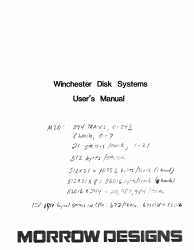 Winchester Disk Systems
User's Manual
M20: 244 TRACKS, 0-243
Heads, 0-7
21 sectors/track, 1-21
512 bytes/sector
512x21 = 10752 bytes/track (1 head)
512x21x8 = 86016 bytes/track (8 heads)
86016 x 244 = 20,987,904 / total
MORROW DESIGNS